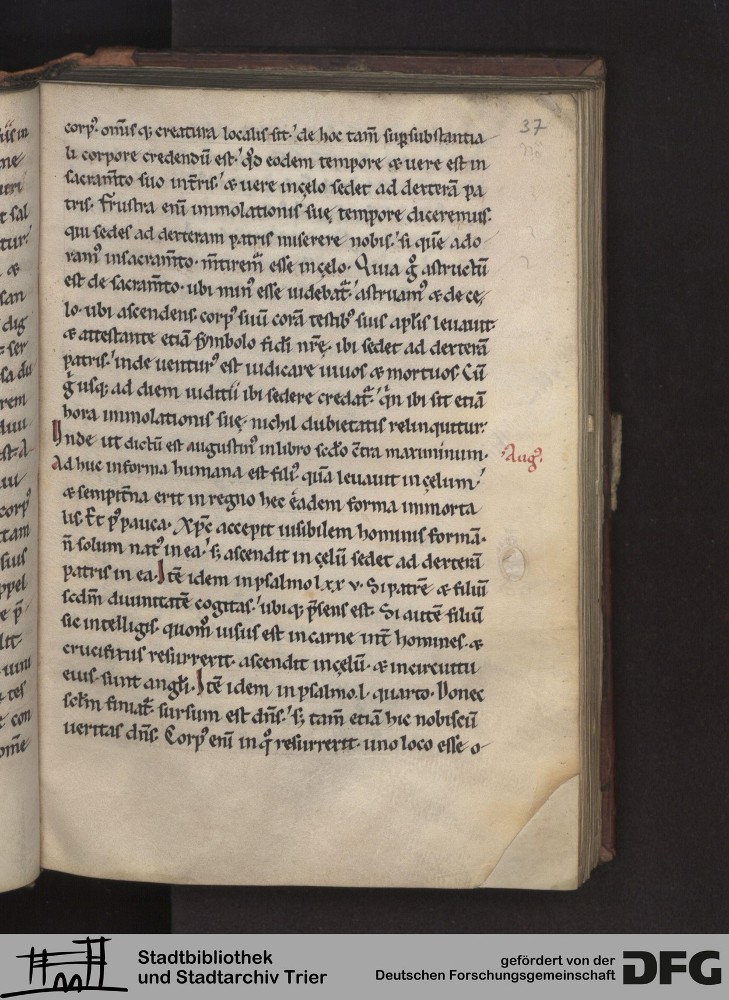 corpꝰ. om̅is q; creatura localis sit.' de hoc tam̅ sup̲substantia
li corpore credendu̅ est.' q̅d eodem tempore & uere est in
sacram̅to suo int̅ris.' & uere in celo sedet ad dextera̅ pa
tris. Frustra eni̅ immolationis sue̜ tempore diceremus.
qui sedes ad dexteram patris miserere nobis.' si que̅ ado
ramꝰ insacram̅to. m̅tirem̅ esse in ce̜lo. Quia g̊ astructu̅
est de sacram̅to. ubi minꝰ esse uidebat̅.' astruamꝰ & de ce̜
lo. ubi ascendens. corpꝰ suu̅ cora̅ testibꝰ suis ap̅lis leuauit.
& attestante etia̅ symbolo fidi n̅re̜. ibi sedet ad dextera̅
patris.' inde uenturꝰ est iudicare uiuos & mortuos. Cu̅
g̊ usq; ad diem iuditii ibi sedere credat̅.' q̅n ibi sit etia̅
hora immolationis sue̜. nichil dubietatis relinquitur.
Inde ut dictu̅ est augustinꝰ in libro sc̅do c̅tra maximinum.
Augꝰ.
Ad huc in forma humana est filiꝰ. qua̅ leuauit in ce̜lum.'
& sempit̅na erit in regno hec eadem forma immorta
lis. Et pꝰ pauca. Xp̅c accepit uisibilem hominis forma̅.
n̅ solum natꝰ in ea.' s; ascendit in ce̜lu̅ sedet ad dextera̅
patris in ea. Ite̅ idem in psalmo lxx v. Si patre̅ & filiu̅
scdm̅ diuinitate̅ cogitas.' ubiq; p̅sens est. Si aute̅ filiu̅
sic intelligis. quom̊ uisus est in carne int̅ homines. &
crucifixus resurrexit. ascendit in ce̜lu̅. & in circuitu
eius. sunt angl̅i. Ite̅ idem in psalmo.l. quarto. Donec
scl̅m finiat̅. sursum est dn̅s.' s; tam̅ etia̅ hic nobiscu̅
ueritas dn̅s. Corpꝰ eni̅ in q̊ resurrexit. uno loco esse o
37
Stadtbibliothek
und Stadtarchiv Trier
gefördert von der
Deutschen Forschungsgemeinschaft
DFG